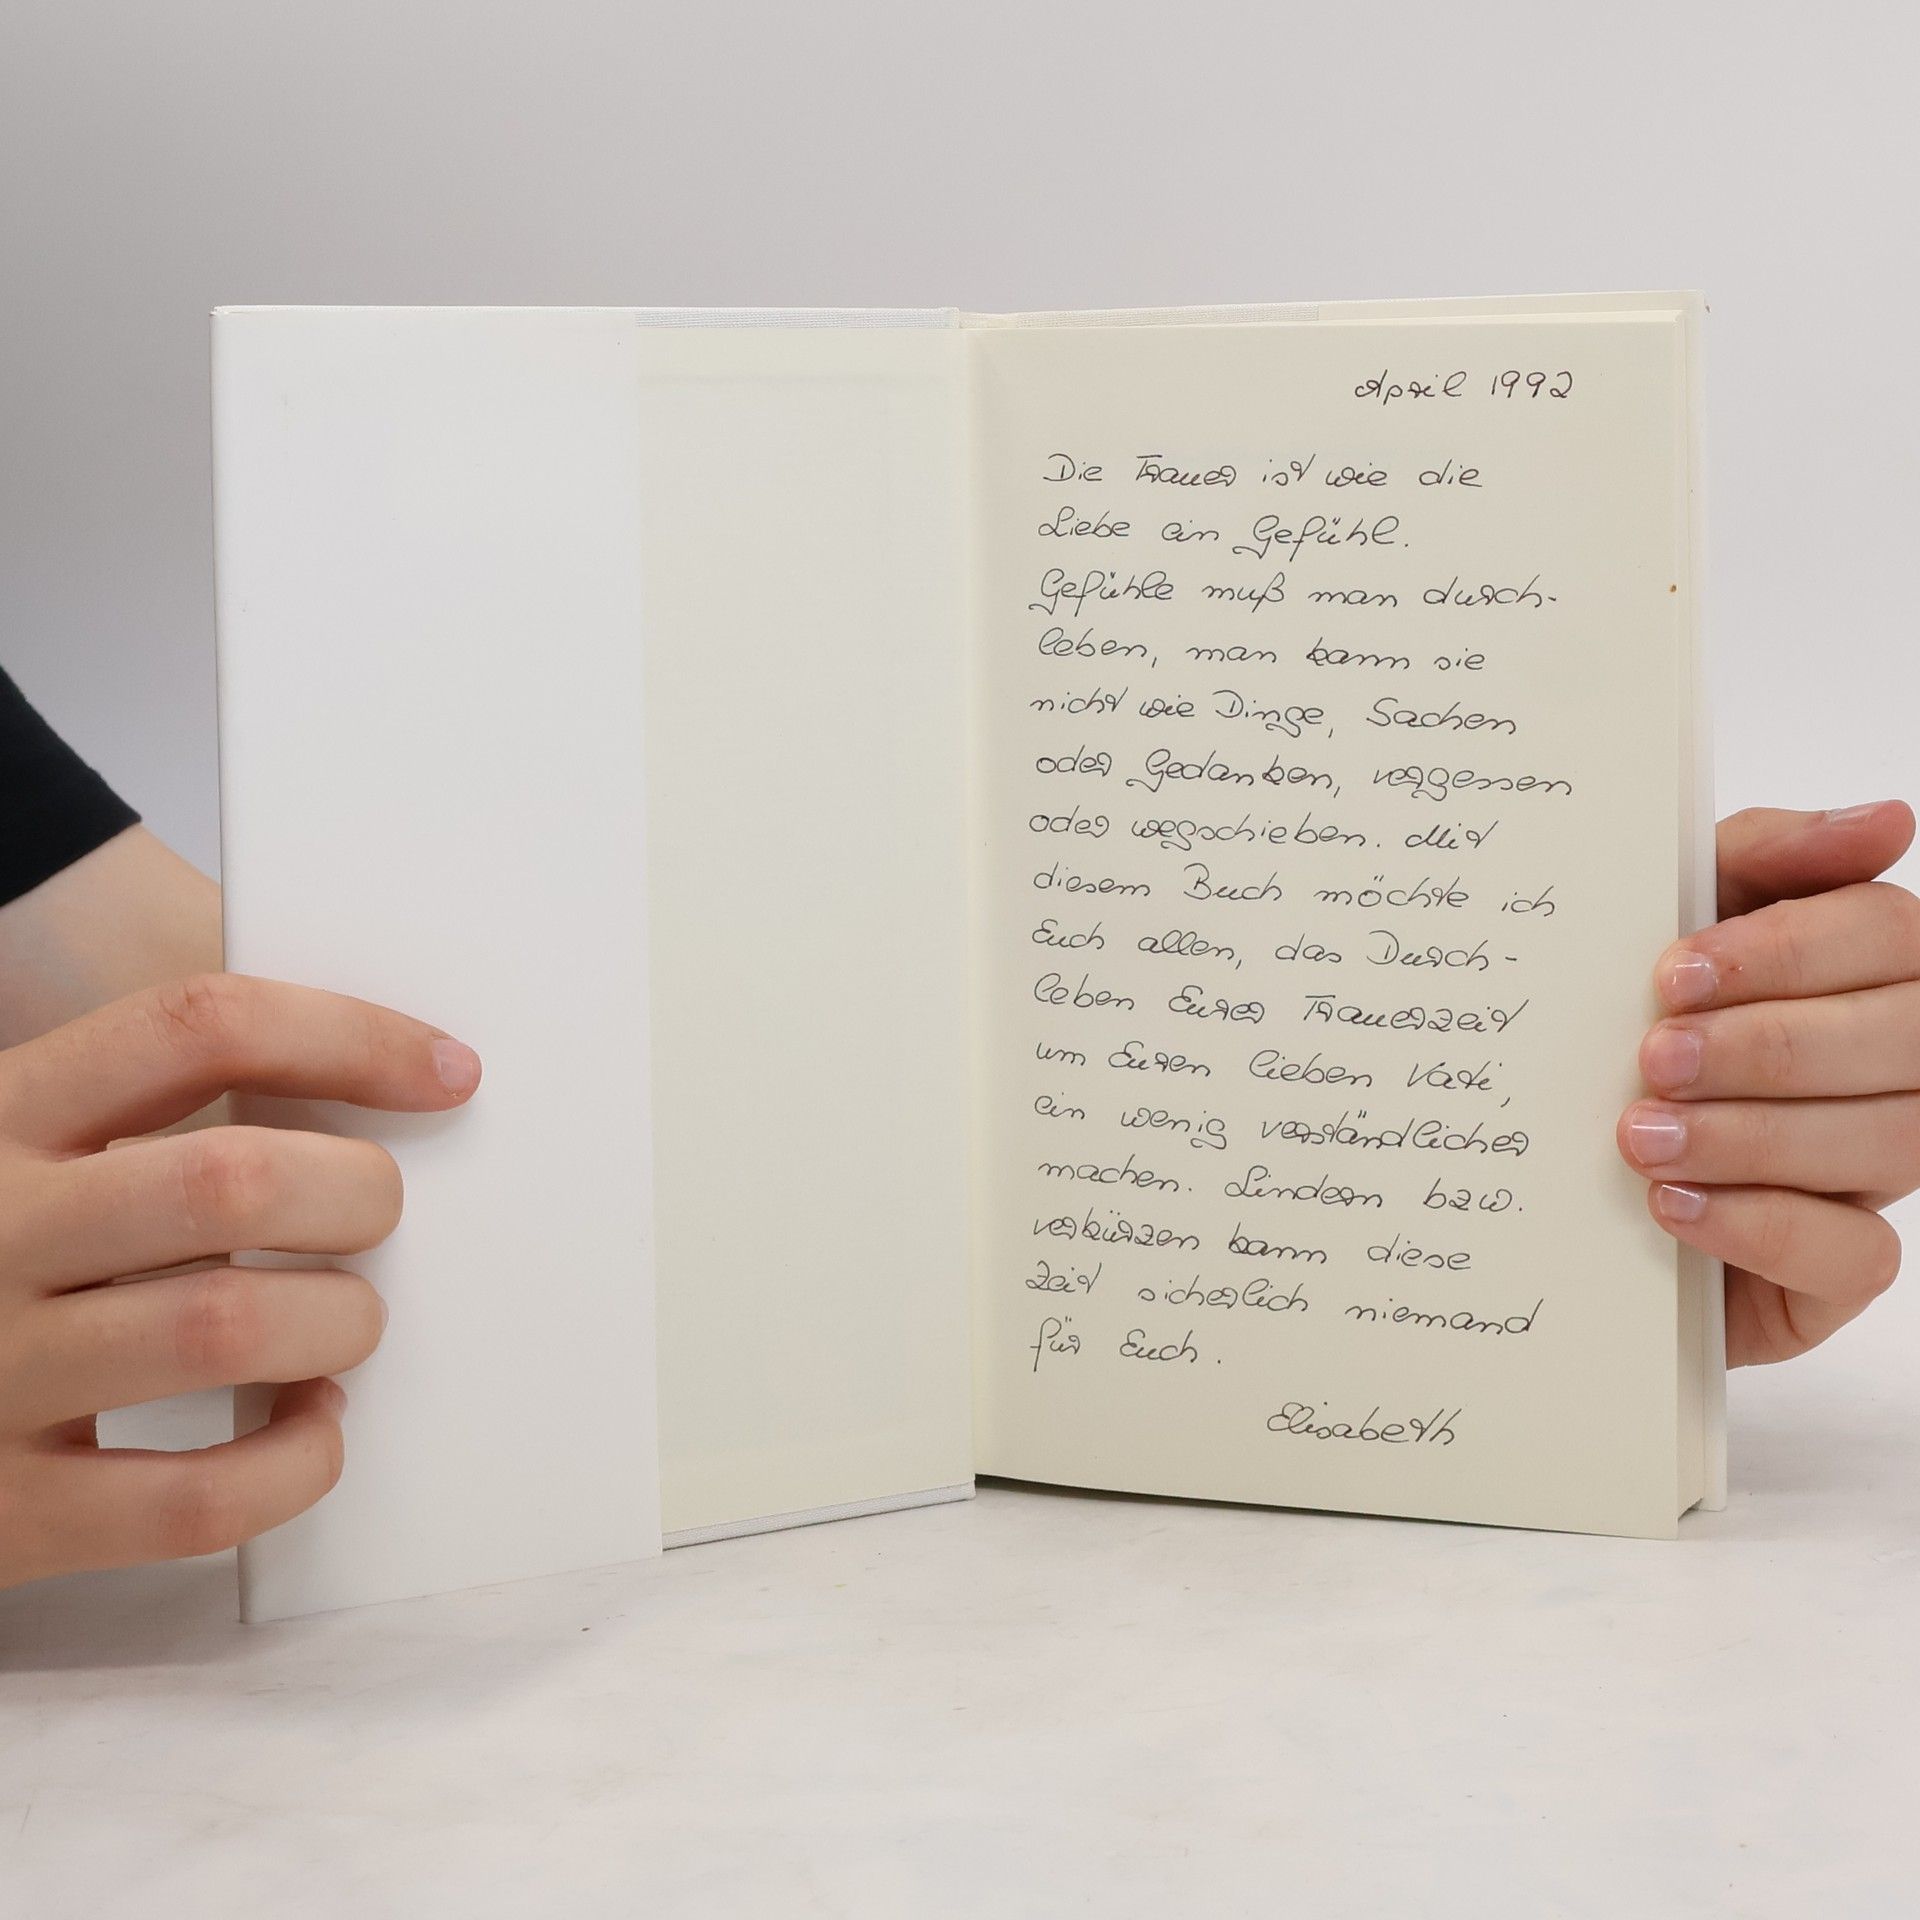 April 1992
Die Trauer ist wie die
Liebe ein Gefühl.
Gefühle muß man durch-
leben, man kann sie
nicht wie Dinge, Sachen
oder Gedanken, vergessen
oder wegschieben. Mit
diesem Buch möchte ich
Euch allen, das Durch-
leben Eurer Trauerzeit
um Euren lieben Vati,
ein wenig verständlicher
machen. Lindern bzw.
verkürzen kann diese
Zeit sicherlich niemand
für Euch.
Elisabeth